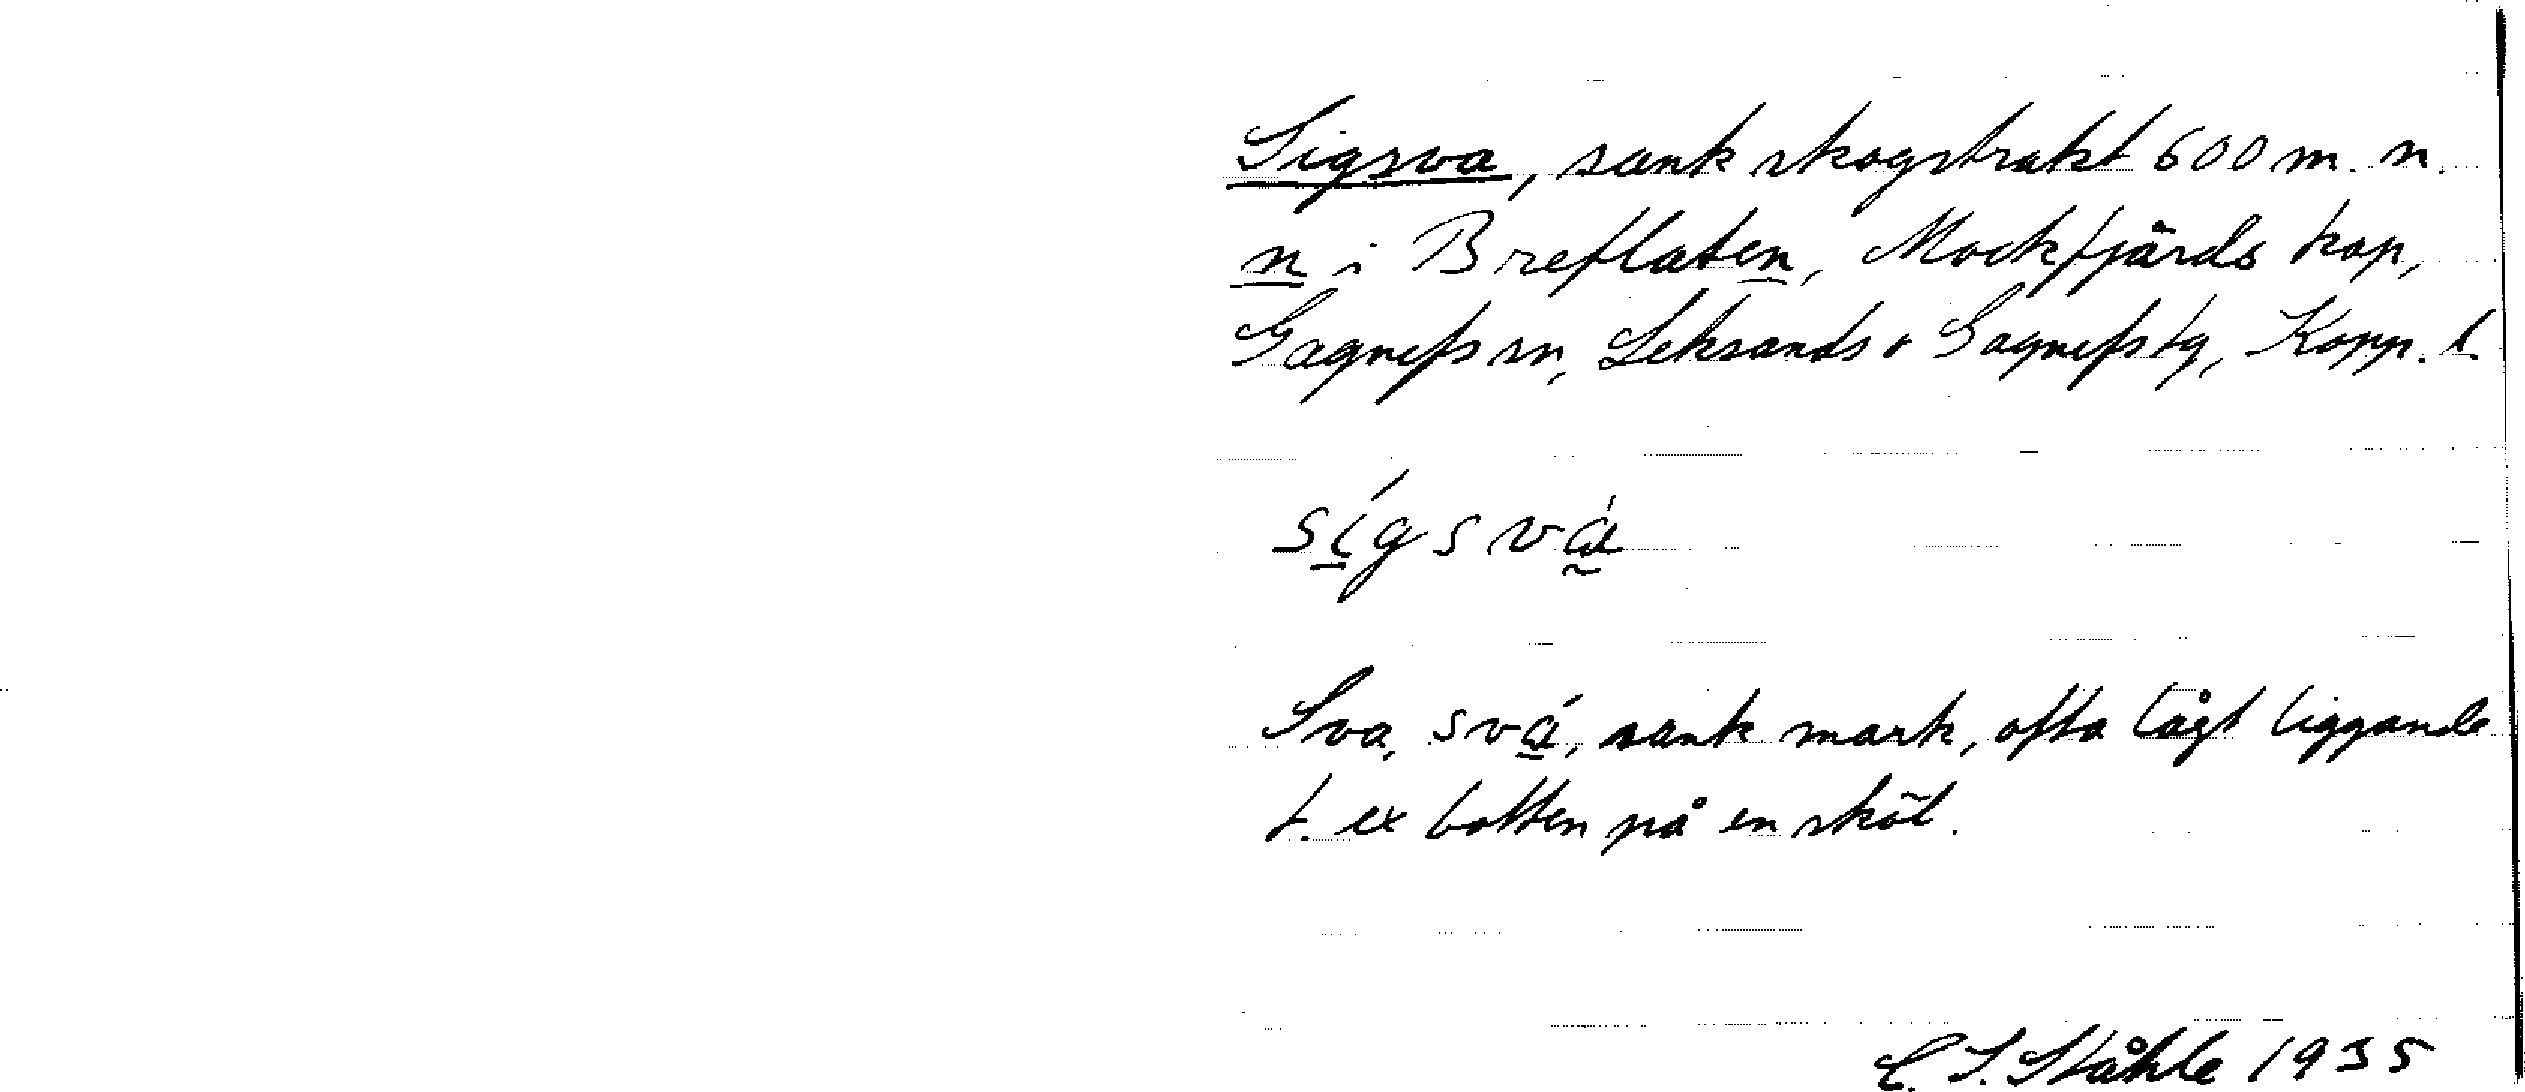 Sigsva, sank skogstrakt 600 m. n.
n i Breflaten, Mockfjärds kap,
Gagnefs sn, Leksands o Gagnefs tg, Kopp. l
sígsvá
Sva, svá, sank mark, ofta lågt liggande
t. ex botten på en sköl.
C. I. Ståhle 1935